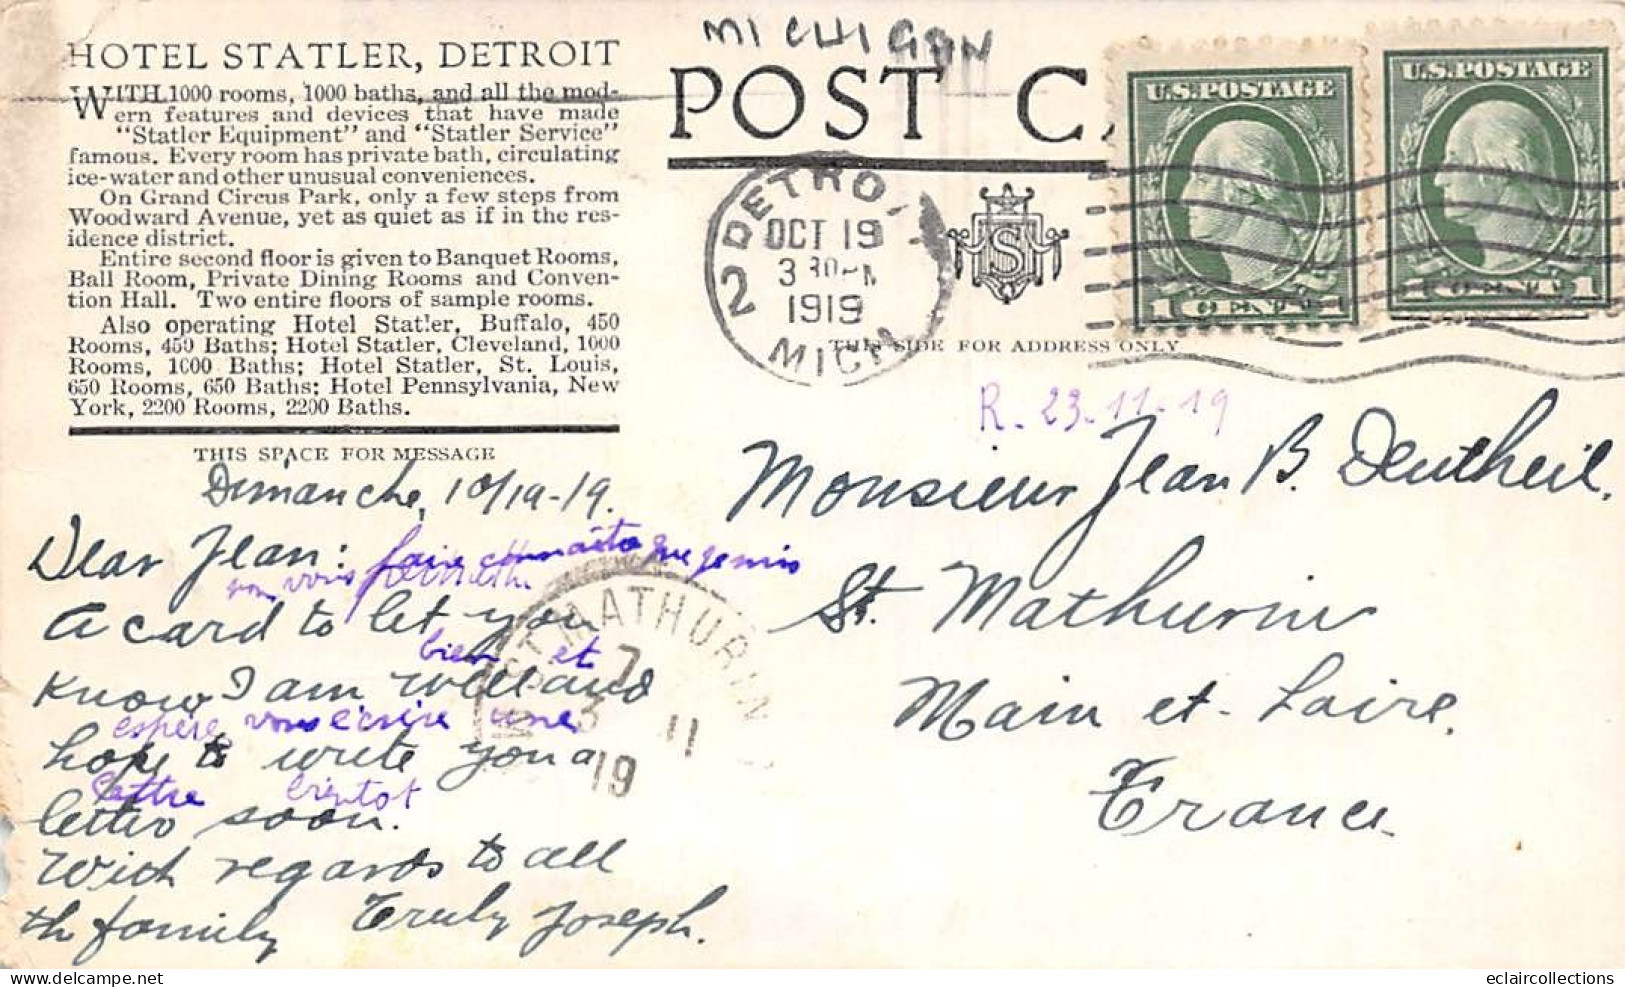 MICHIGAN
HOTEL STATLER, DETROIT
WITH 1000 rooms, 1000 baths, and all the mod-
ern features and devices that have made
"Statler Equipment" and "Statler Service"
famous. Every room has private bath, circulating
ice-water and other unusual conveniences.
On Grand Circus Park, only a few steps from
Woodward Avenue, yet as quiet as if in the res-
idence district.
Entire second floor is given to Banquet Rooms,
Ball Room, Private Dining Rooms and Conven-
tion Hall. Two entire floors of sample rooms.
Also operating Hotel Statler, Buffalo, 450
Rooms, 450 Baths; Hotel Statler, Cleveland, 1000
Rooms, 1000 Baths; Hotel Statler, St. Louis,
650 Rooms, 650 Baths; Hotel Pennsylvania, New
York, 2200 Rooms, 2200 Baths.
THIS SPACE FOR MESSAGE
Dimanche, 10/19-19.
Dear Jean:
faire connaître que je suis
vous
A card to let you
bien et
Know I am well and
espère vous écrire une
hope to write you a
lettre bientot
letter soon.
With regards to all
th family Truly Joseph.
POST CA
U.S.POSTAGE
1 CENT 1
U.S.POSTAGE
1 CENT 1
DETROI
2
OCT 19
3 30-M
1919
MICH
S
THIS SIDE FOR ADDRESS ONLY
R. 23-11-19
Monsieur Jean B. Deutheil.
St. Mathurin
Main et-Loire.
France.
ST MATHURIN
7
3 11
19
eclaircollections